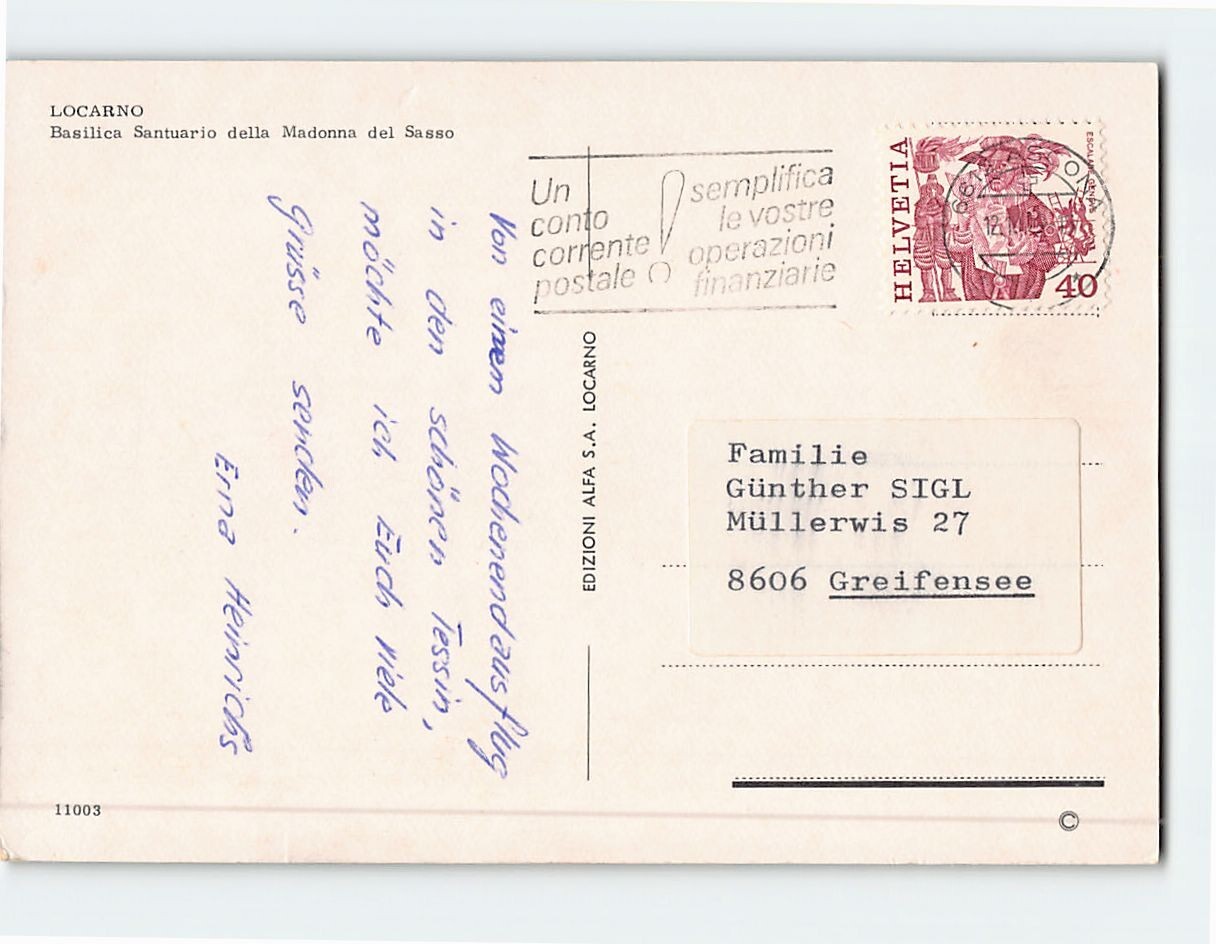 LOCARNO
Basilica Santuario della Madonna del Sasso
Un
conto
corrente
postale
!
semplifica
le vostre
operazioni
finanziarie
HELVETIA
ESCALADE GENÈVE
40
Von einem Wochenendausflug
in den schönen Tessin,
möchte ich Euch viele
Grüsse senden.
Erna Heinrichs
EDIZIONI ALFA S.A. LOCARNO
Familie
Günther SIGL
Müllerwis 27
8606 Greifensee
11003
©